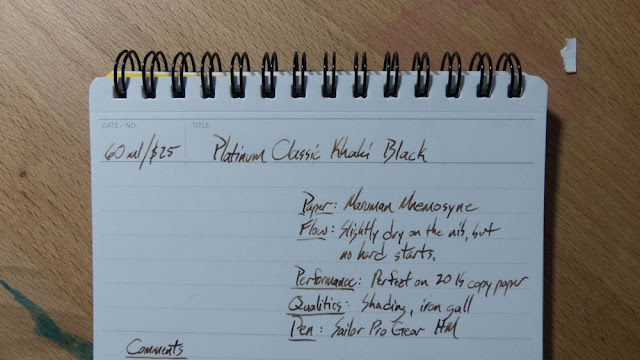 DATE/NO. TITLE
60 ml/$25 Platinum Classic Khaki Black
Paper: Maruman Mnemosyne
Flow: Slightly dry on the nib, but
no hard starts.
Performance: Perfect on 20 lb copy paper
Qualities: Shading, iron gall
Pen: Sailor Pro Gear HM
Comments